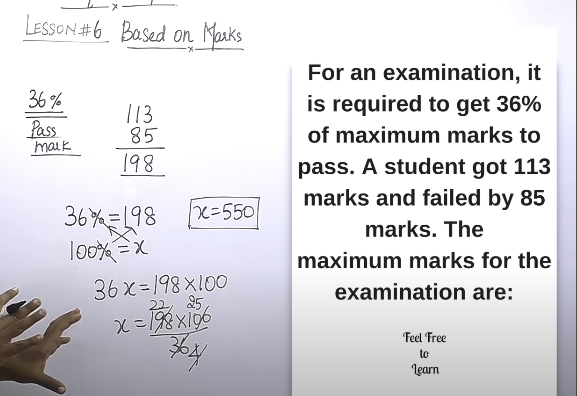 LESSON#6 Based on Marks
36%
Pass
mark
113
85
198
36%=198
100%=x
x=550
36x=198×100
22 25
x=198×100
36 4
For an examination, it
is required to get 36%
of maximum marks to
pass. A student got 113
marks and failed by 85
marks. The
maximum marks for the
examination are:
Feel Free
to
Learn